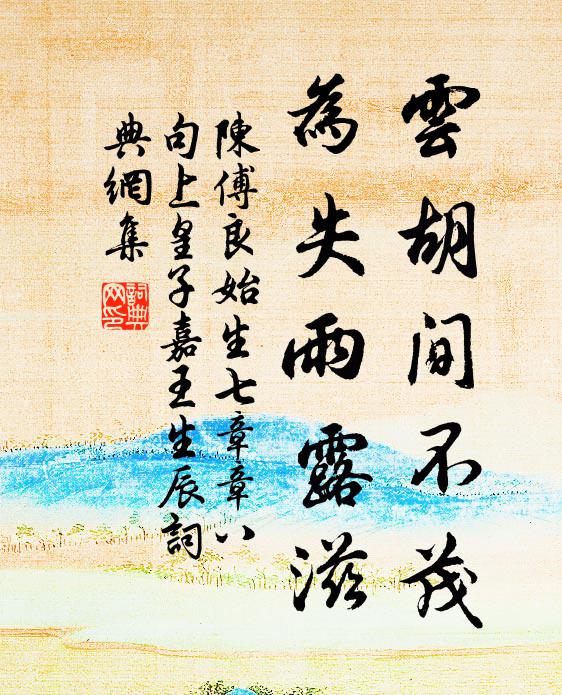 雲胡間不茂
為失雨露滋
陳傅良始生七章章八
句上皇子嘉王生辰詞
典網集
詞典
网印